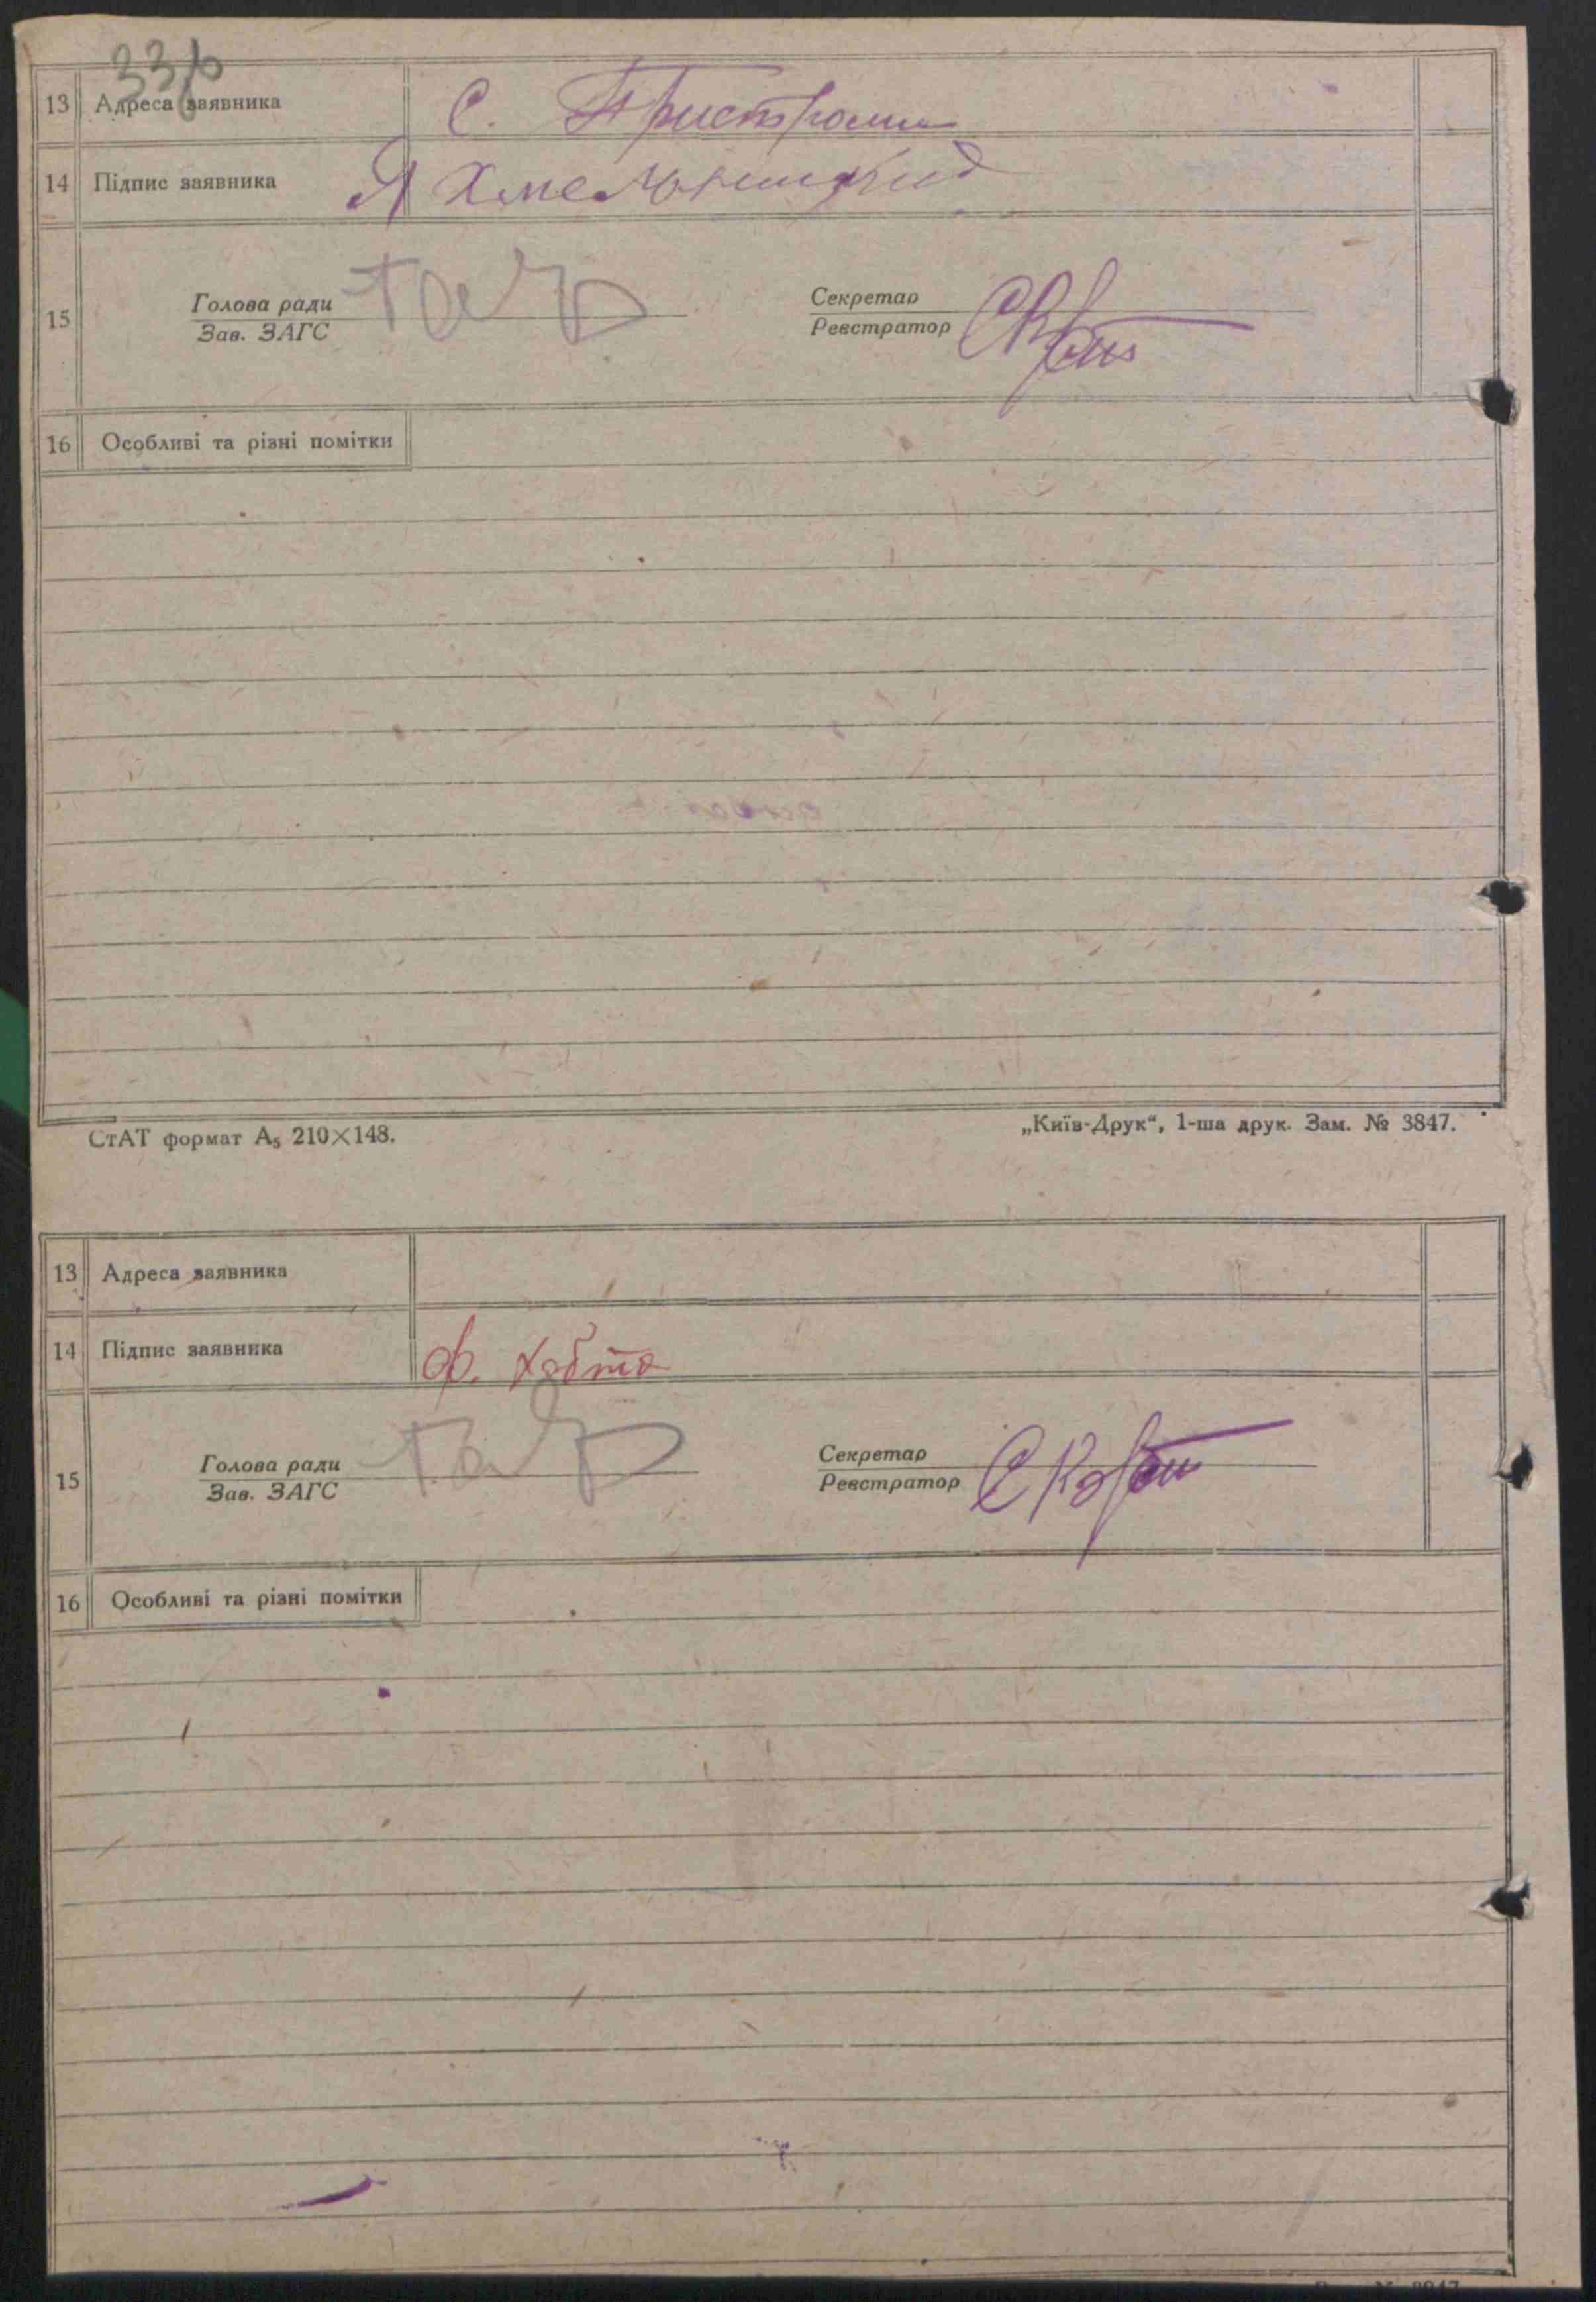 13 Адреса заявника С. Пристроми
14 Підпис заявника Я Хмельницкий
15 Голова ради Секретар
Зав. ЗАГС Реєстратор
16 Особливі та різні помітки
СтАТ формат А₅ 210×148. „Київ-Друк“, 1-ша друк. Зам. № 3847.
13 Адреса заявника
14 Підпис заявника Ф. Хобта
15 Голова ради Секретар
Зав. ЗАГС Реєстратор
16 Особливі та різні помітки